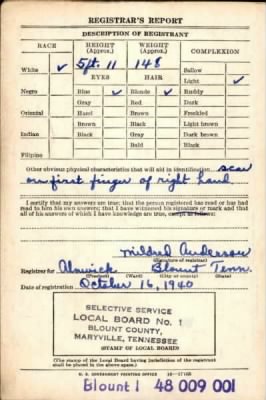 REGISTRAR'S REPORT
DESCRIPTION OF REGISTRANT
RACE HEIGHT (Approx.) WEIGHT (Approx.) COMPLEXION
White ✓ 5ft. 11 148 Sallow
EYES HAIR Light ✓
Negro Blue ✓ Blonde ✓ Ruddy
Gray Red Dark
Oriental Hazel Brown Freckled
Brown Black Light brown
Indian Black Gray Dark brown
Bald Black
Filipino
Other obvious physical characteristics that will aid in identification scar
on first finger of right hand
I certify that my answers are true; that the person registered has read or has had
read to him his own answers; that I have witnessed his signature or mark and that
all of his answers of which I have knowledge are true, except as follows:
Mildred Anderson
(Signature of registrar)
Registrar for Alnwick Blount Tenn.
(Precinct) (Ward) (City or County) (State)
Date of registration October 16, 1940
SELECTIVE SERVICE
LOCAL BOARD No. 1
BLOUNT COUNTY,
MARYVILLE, TENNESSEE
(STAMP OF LOCAL BOARD)
(The stamp of the Local Board having jurisdiction of the registrant
shall be placed in the above space.)
U. S. GOVERNMENT PRINTING OFFICE 16—17105
Blount 1 48 009 001